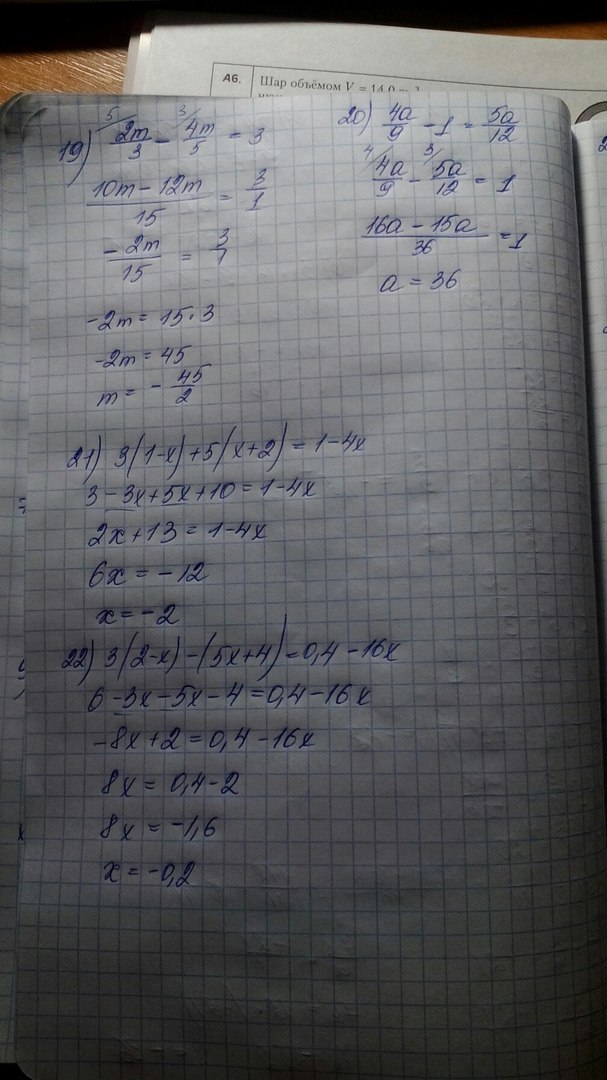 А6. Шар объёмом V = 14,0
19) 2m/3 - 4m/5 = 3
(10m - 12m)/15 = 3/1
-2m/15 = 3/1
-2m = 15·3
-2m = 45
m = - 45/2
20) 4a/9 - 1 = 5a/12
4a/9 - 5a/12 = 1
(16a - 15a)/36 = 1
a = 36
21) 3(1-x)+5(x+2) = 1-4x
3-3x+5x+10 = 1-4x
2x+13 = 1-4x
6x = -12
x = -2
22) 3(2-x)-(5x+4) = 0,4-16x
6-3x-5x-4 = 0,4-16x
-8x+2 = 0,4-16x
8x = 0,4-2
8x = -1,6
x = -0,2